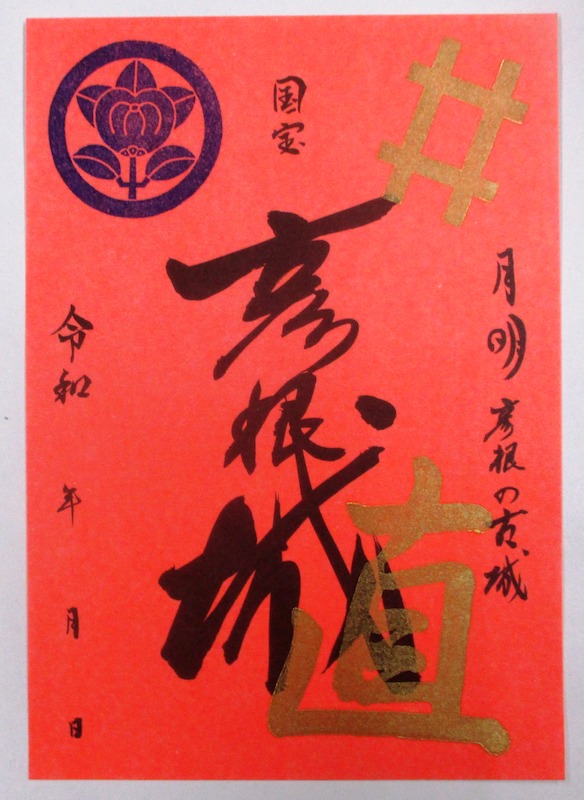 井
月明彦根の古城
国宝
彦根城
直
令和 年 月 日